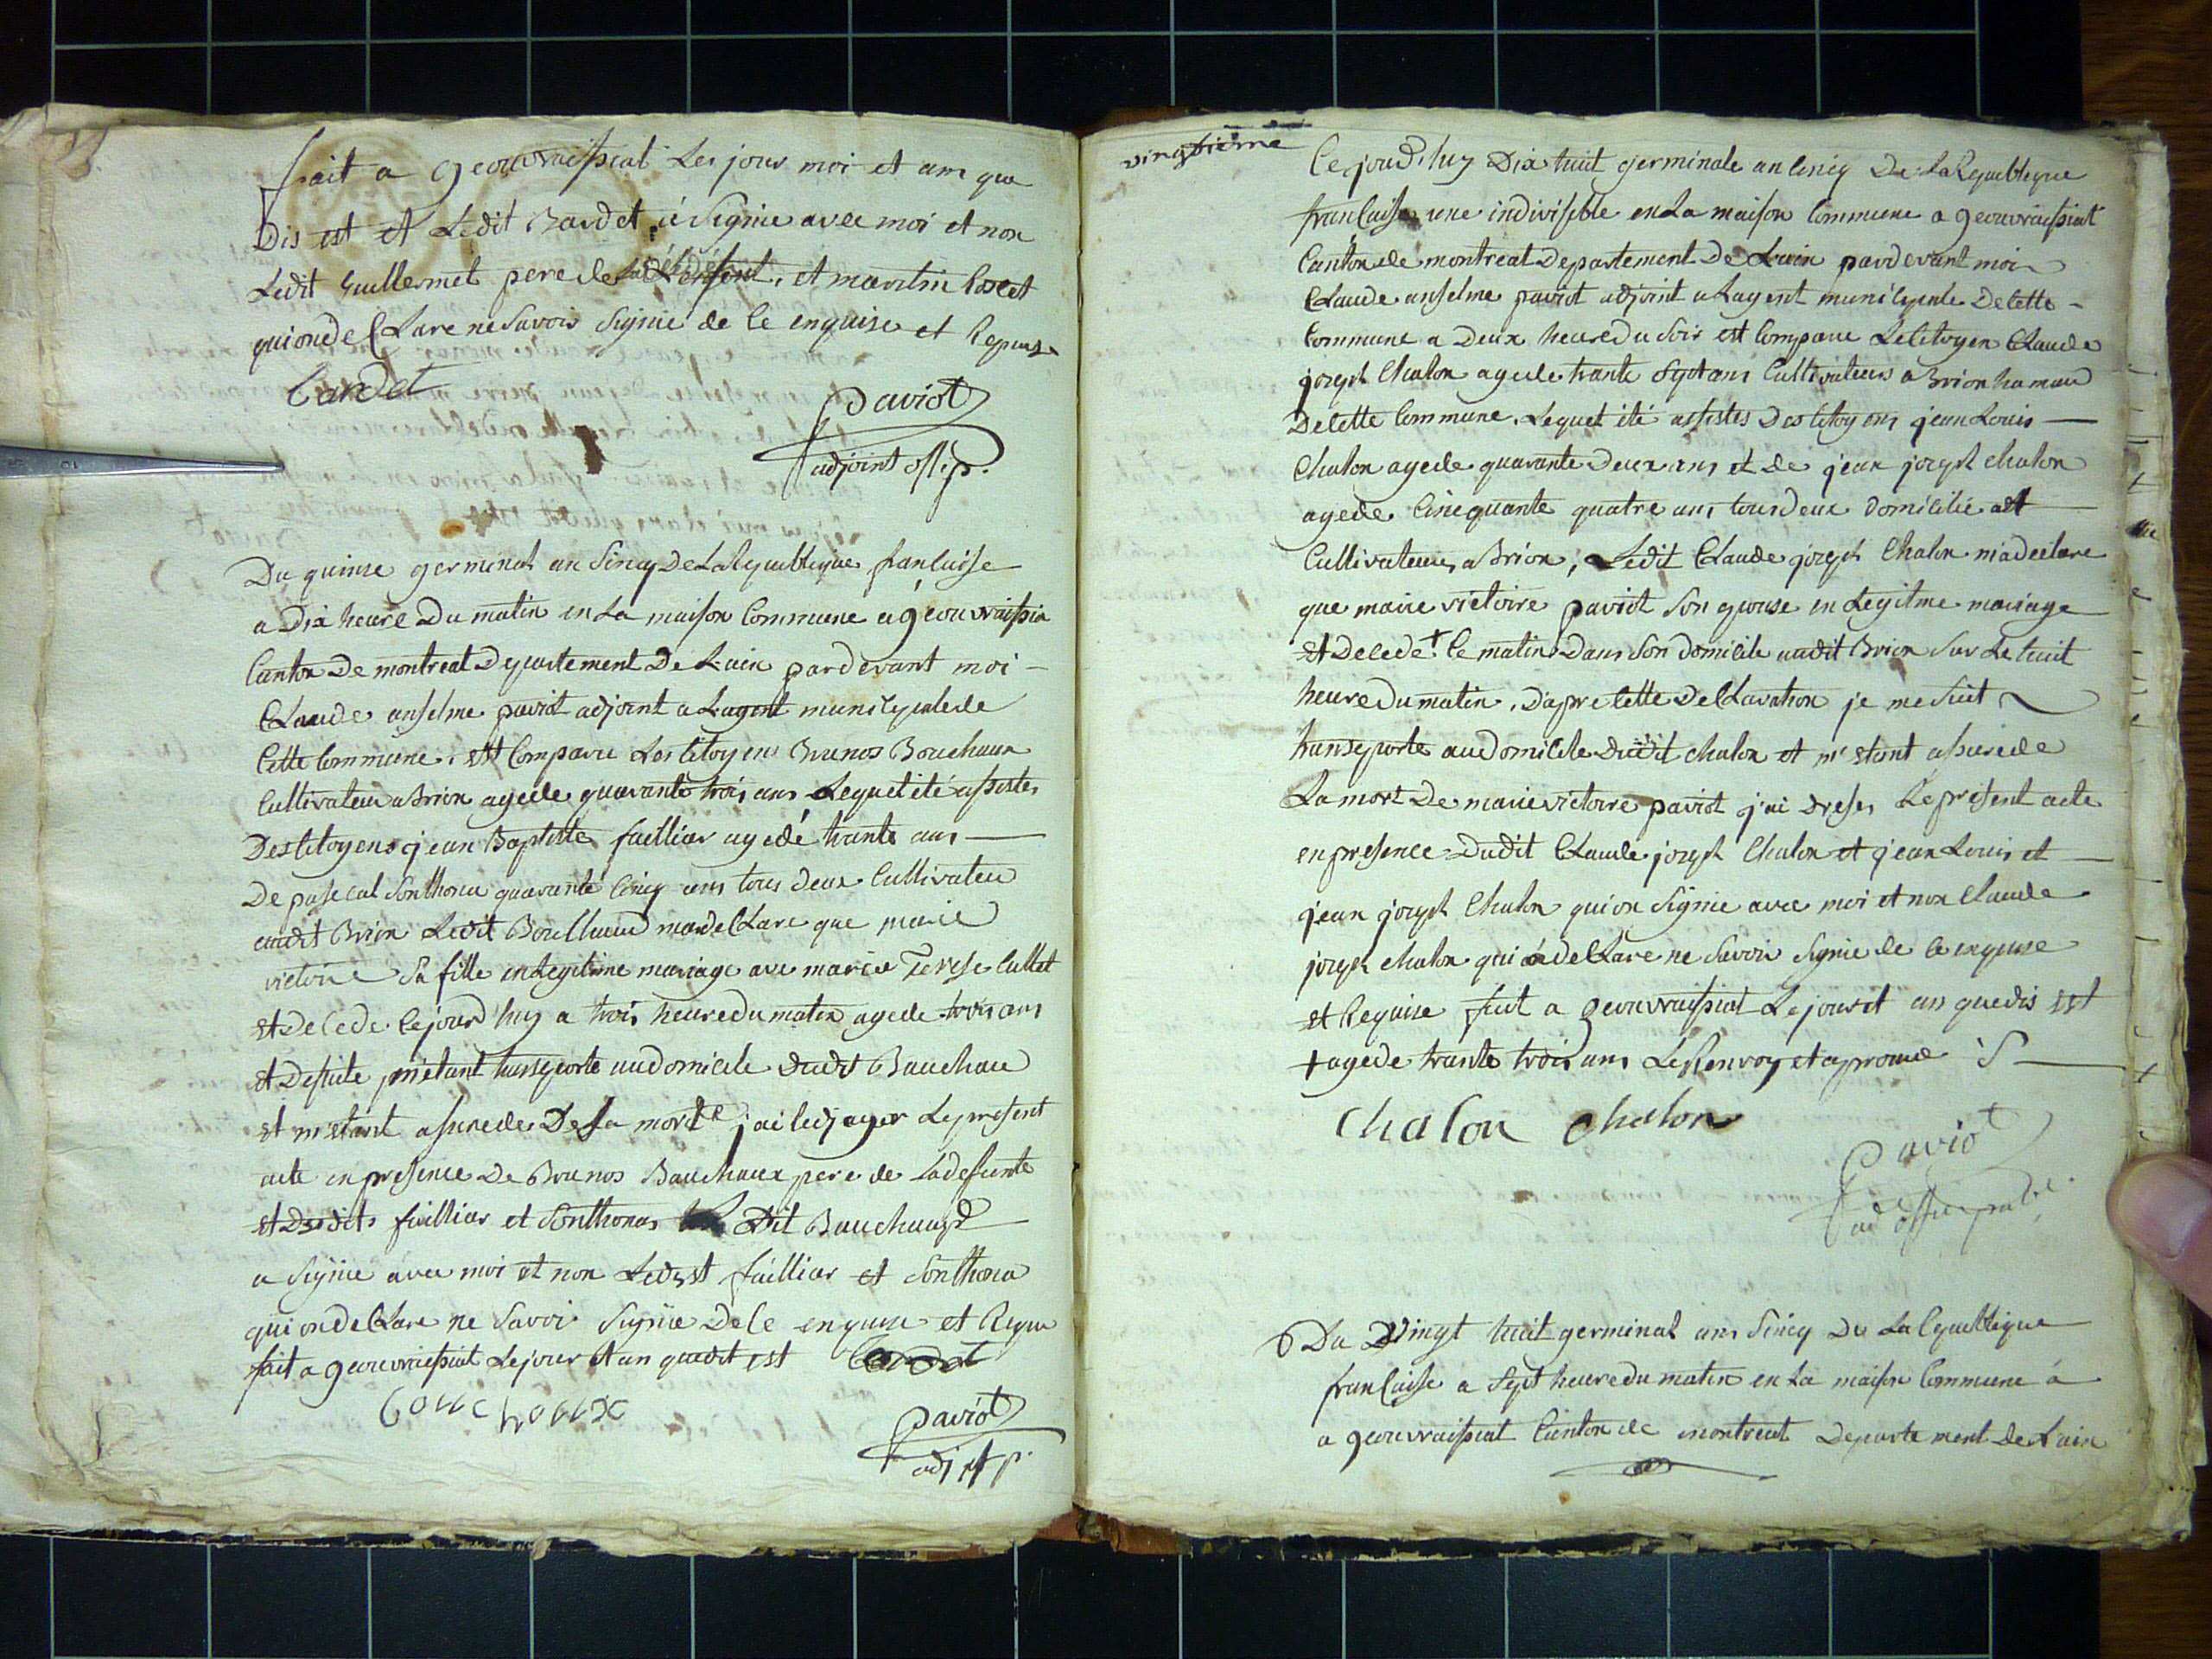 fait a geouvraissiat Les jour moi et an que
Dis est et Ledit Bardet à Signie avec moi et non
Ledit Guillermet pere de La déffente, et martin
qui onde Clare ne Savoir Signie de Ce enquise et Requise
Bardet
Paviot
adjoint off. p.
Du quinse germinal an Sincq De La Republique francaisse
a Dix heure Du matin en La maison Commune a geouvraissia
Canton De montreal Departement De Lain pardevant moi
Claude anselme paviot adjoint a Lagent municipale de
Cette Commune. est Comparu Les Citoyens Brunos Bouchaux
Cultivateur a Brion agede quarante trois ans Lequel été assistes
Des Citoyens jean Baptiste faillier agedé trante ans
De pascal Sonthona quarante Cinq ans tous deux Cultivateu
audit Brion Ledit Bouchaux ma de Clare que marie
victoire Sa fille en Legitime mariage avec marie Terese Cullet
est Decede Cejourd huy a trois heure du matin agede trois ans
et Desuite m'etant transporte au domicile Dudit Bauchaux
et m'etant assurede De Sa mort j'ai ledjager Le present
acte en presence De Brunos Bauchaux pere de La defunte
et Desdits faillier et Sonthonas Dit Bauchaux
a Signie avec moi et non Ledist faillier et Sonthona
qui on de Clare ne Savoi Signie De Ce enquise et Requi
fait a geouvraissiat Le jour et an quedit est
bouchoux
Paviot
adj off p.
vingtieme
Cejourd'huy Dix huit germinale an Cincq De La Republique
francaisse une indivisible en La maison Commune a geouvraissiat
Canton de montreal Departement De Lain pardevant moi
Claude anselme paviot adjoint a Lagent municipale De Cette
Commune a Deux heure Du Soir est Comparu Le Citoyen Claude
joseph Chalon agede trante Sept ans Cultivateur a Brion hamau
De Cette Commune. Lequel été assistes Des Citoyens jean Louis
Chalon agede quarante Deux ans et de jean joseph Chalon
agede Cinequante quatre ans tous Deux domicilié et
Cultivateur a Brion, Ledit Claude joseph Chalon m'a declare
que marie victoire paviot Son epouse en Legitme mariage
est Decede + Ce matin Dans Son domicile audit Brion Sur Le huit
heure Du matin. D'apre Cette De Claration je me Suit
transporte au Domicile Dudit chalon et m'etant assurede
La mort De marie victoire paviot j'ai dreser Le present acte
en presence Dudit Claude joseph Chalon et jean Louis et
jean joseph Chalon qui on Signie avec moi et non Claude
joseph chalon qui a de Clare ne Savoir Signie de Ce enquise
et Requise fait a geouvraissiat Le jour et an quedis est
+ agede trante trois ans Le Renvoy et aprouve
Chalon Chalon
Paviot
ad offi public
Du Vingt huit germinal ans Sincq De La Republique
francaisse a Sept heure du matin en La maison Commune à
a geouvraissiat Canton de montreal Departement de Lain